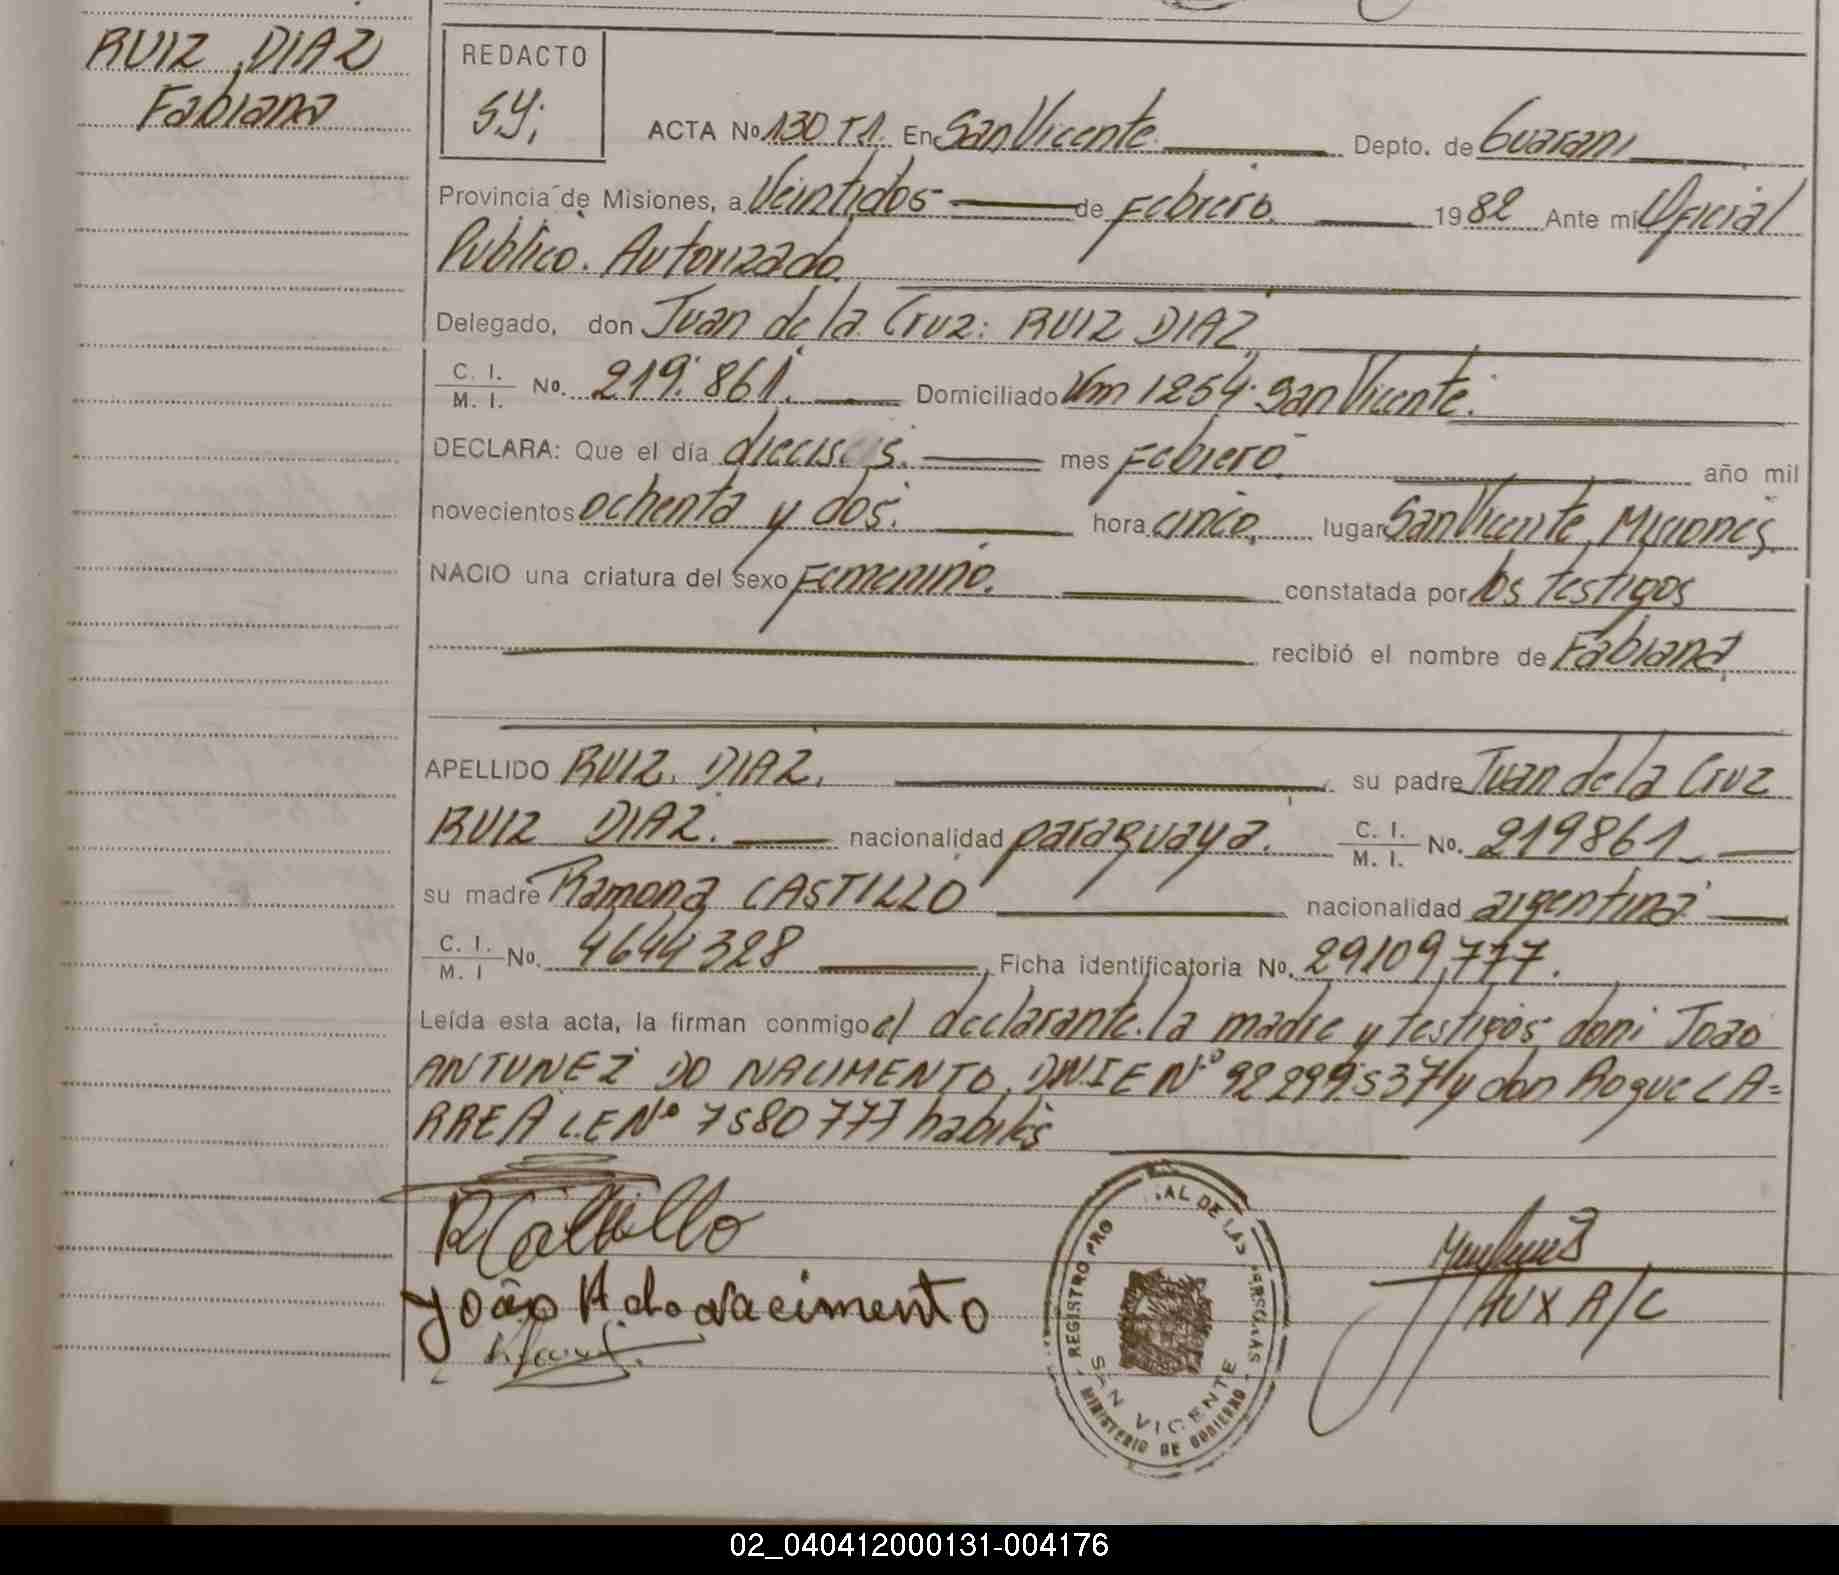 RUIZ DIAZ
Fabiana
REDACTO
S.Y;
ACTA No 130 T1. En San Vicente Depto. de Guarani
Provincia de Misiones, a Veintidos de Febrero 1982 Ante mi Oficial
Público. Autorizado
Delegado, don Juan de la Cruz: RUIZ DIAZ
C. I. / M. I. No. 219.861. Domiciliado Km 1254. San Vicente.
DECLARA: Que el día dieciseis. mes Febrero año mil
novecientos ochenta y dos. hora cinco, lugar San Vicente, Misiones
NACIO una criatura del sexo Femenino. constatada por los testigos
recibió el nombre de Fabiana
APELLIDO RUIZ. DIAZ. su padre Juan de la Cruz
RUIZ DIAZ. nacionalidad paraguaya. C. I. / M. I. No. 219861
su madre Ramona CASTILLO nacionalidad argentina
C. I. / M. I No. 4644328 Ficha identificatoria No. 29109,777.
Leída esta acta, la firman conmigo el declarante. la madre y testigos don: Joao
ANTUNEZ DO NACIMENTO, DNIE Nº 92299537 y don Roque LA=
RREA L.E Nº 7580777 habiles
R Castillo
João A do Nacimento
AUX A/C
REGISTRO PRO AL DE LAS PERSONAS
SAN VICENTE
MINISTERIO DE GOBIERNO
02_040412000131-004176